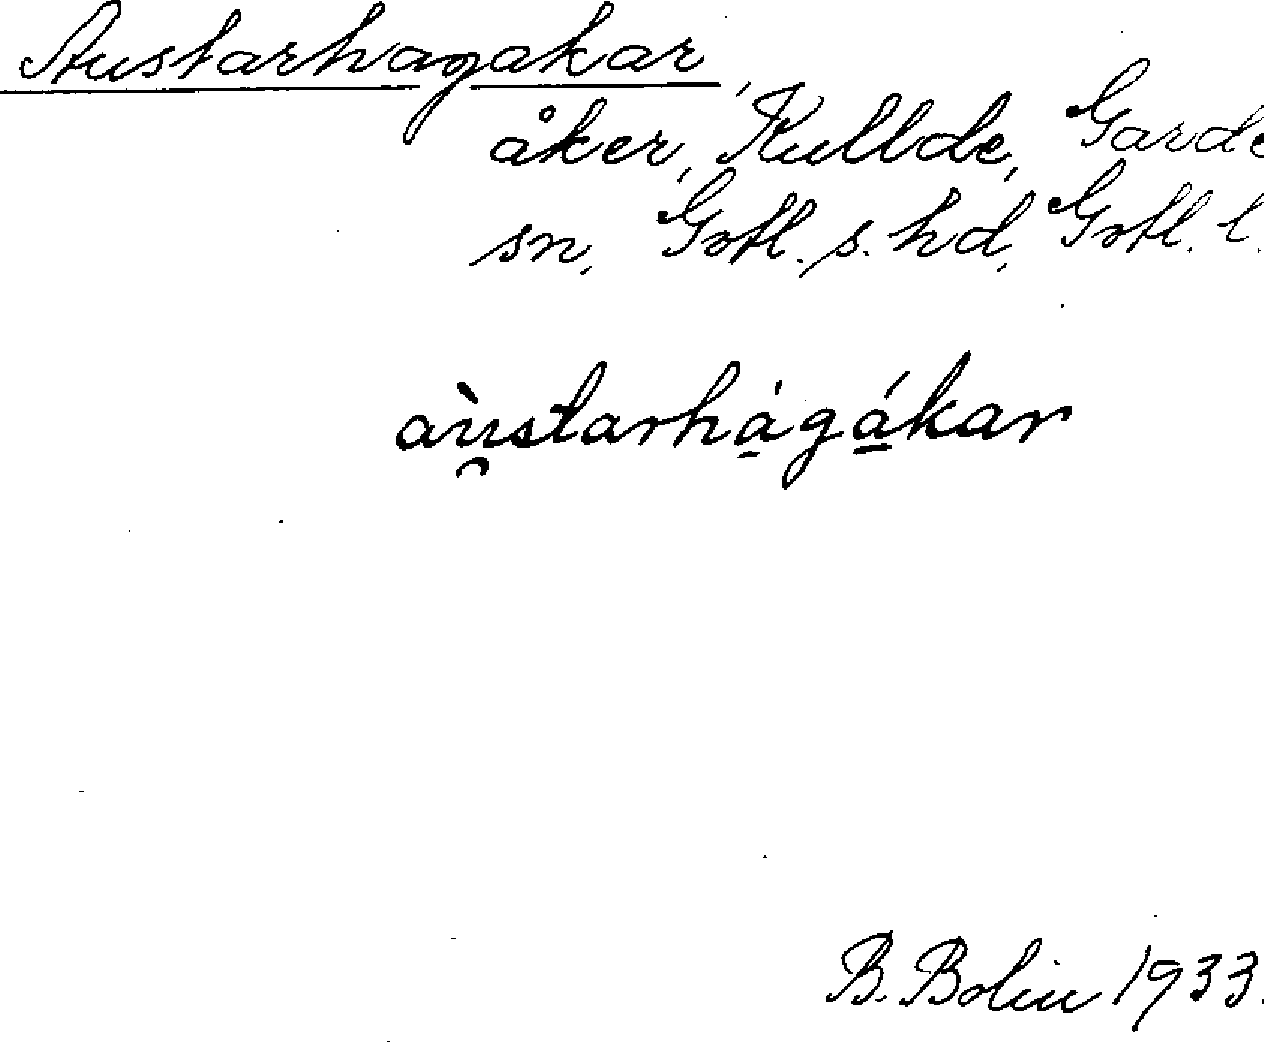 Austarhagakar,
åker, Kullde, Garde
sn, Gotl. s. hd, Gotl. l.
aù̯starhá̱gá̱kar
B. Bolin 1933.